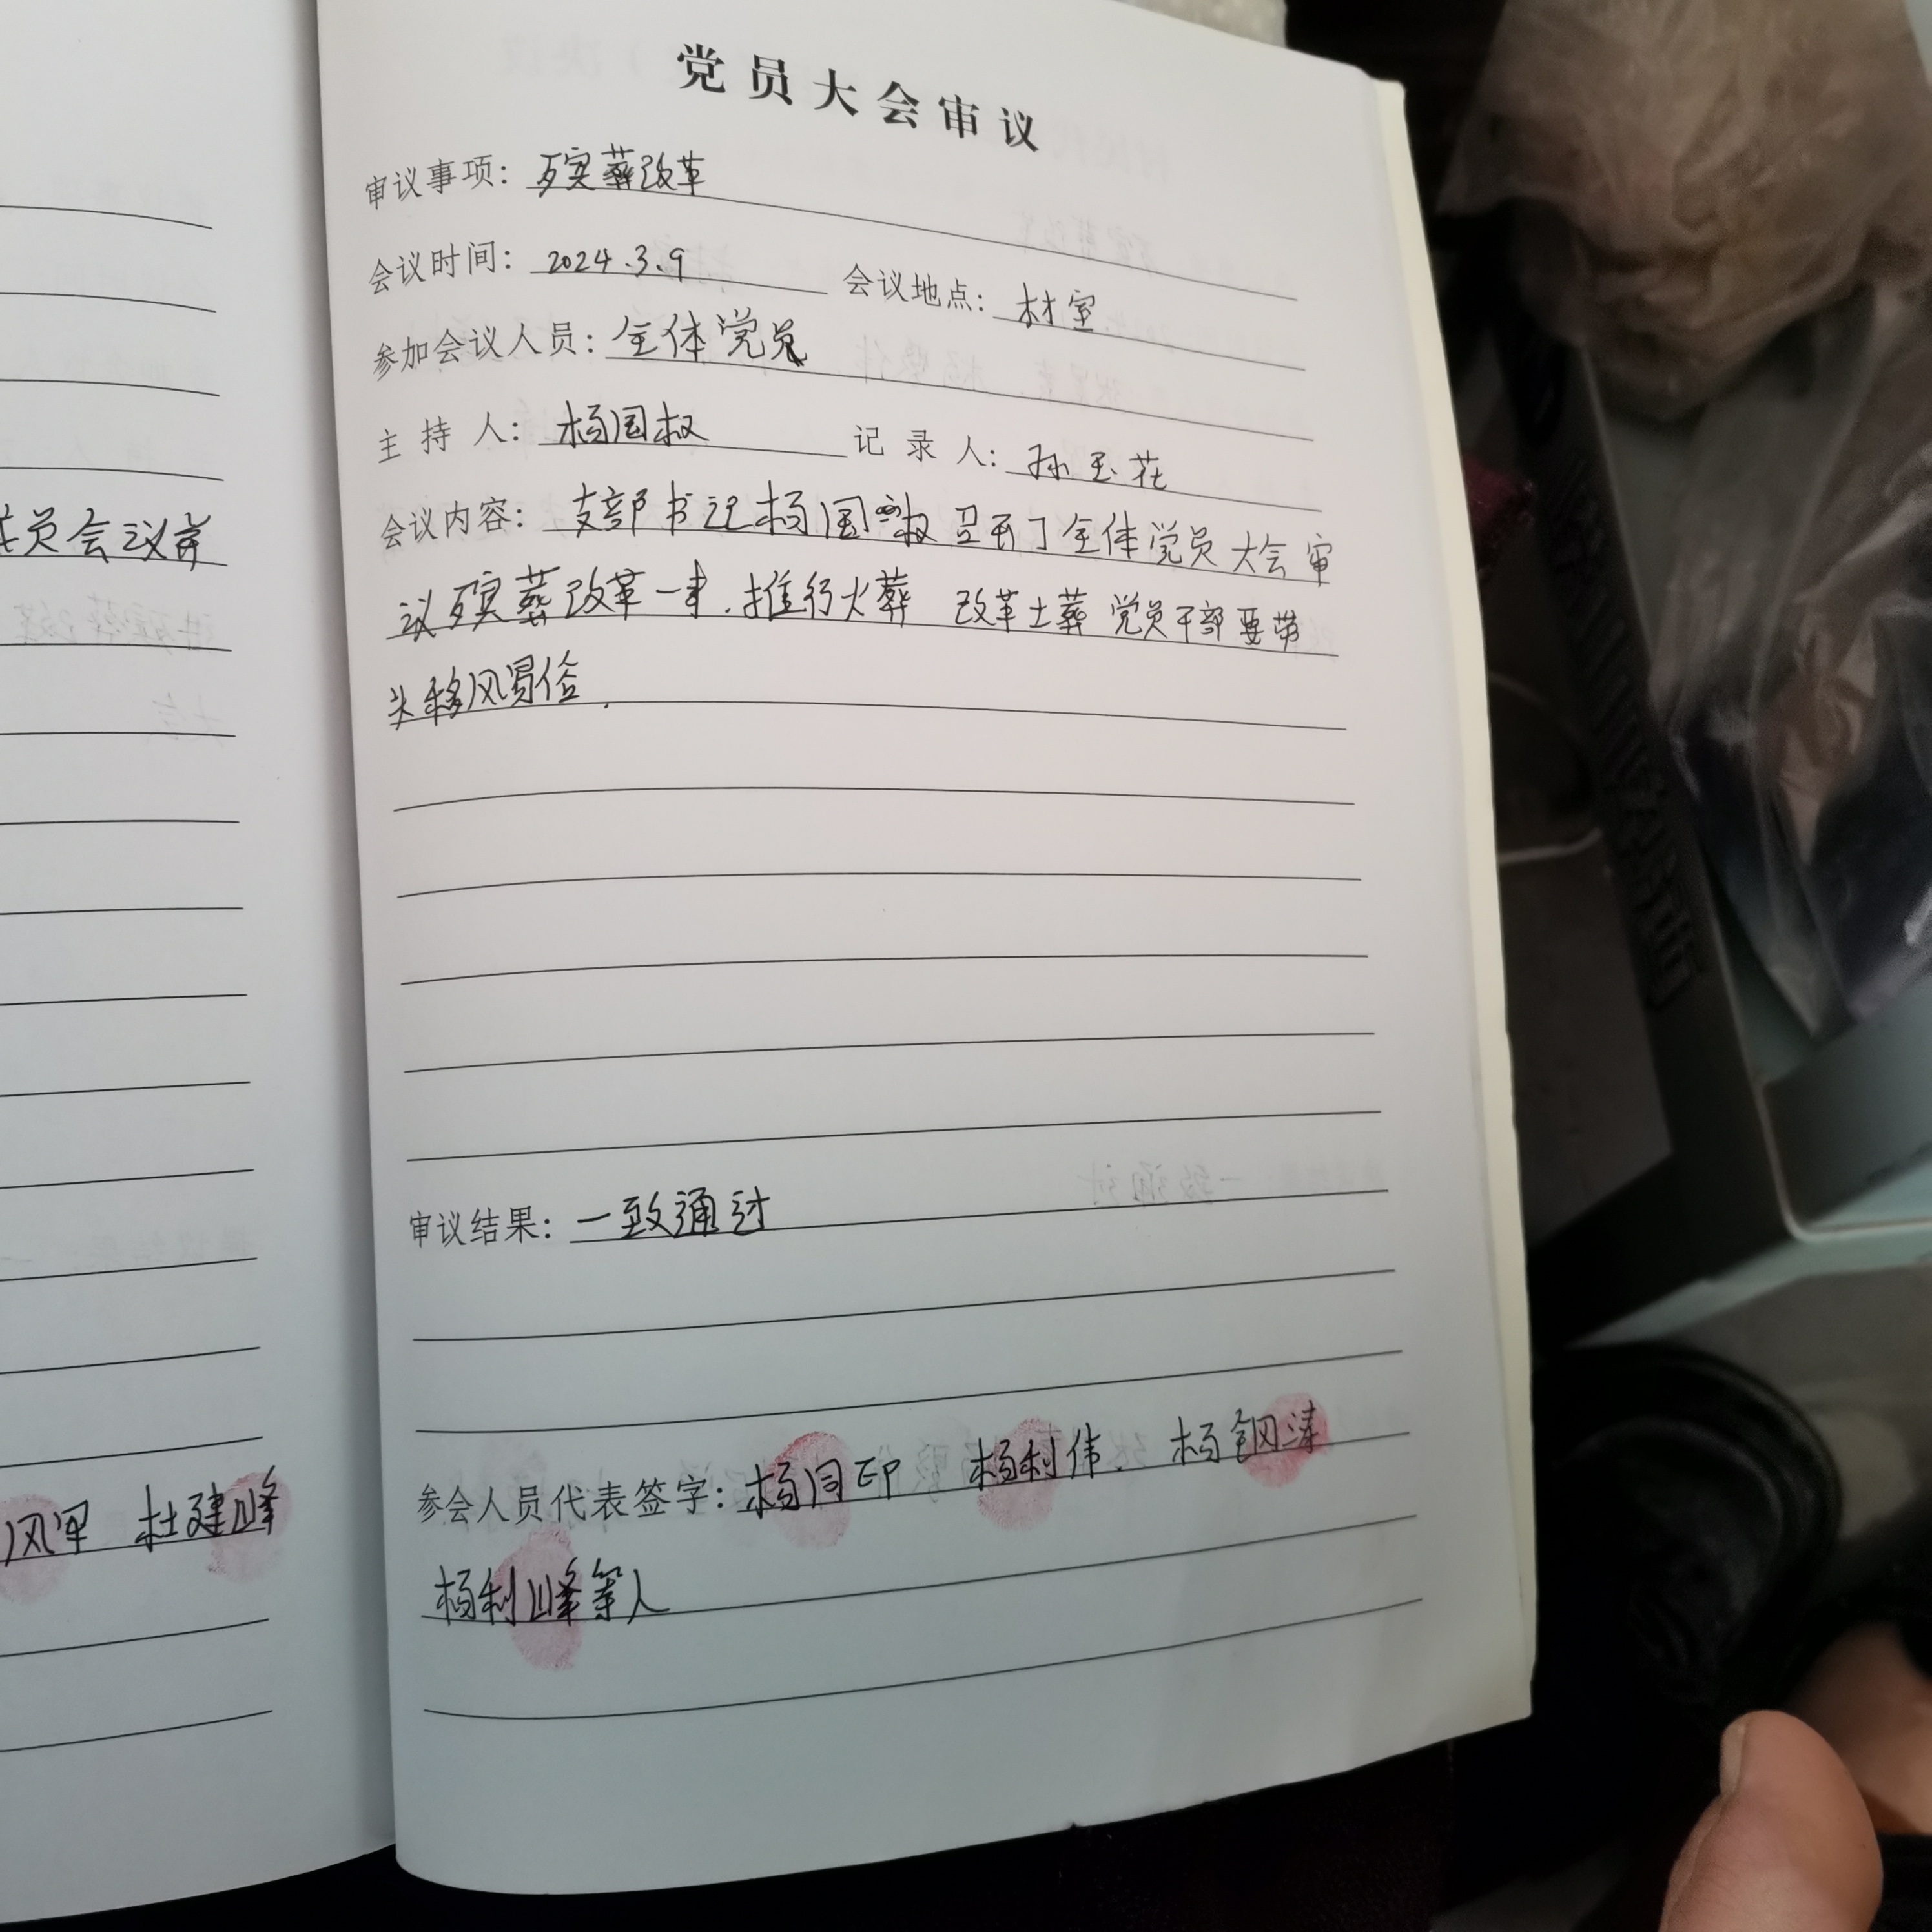 党员大会审议
审议事项：殡葬改革
会议时间：2024.3.9 会议地点：村室
参加会议人员：全体党员
主持人：杨国权 记录人：孙玉花
会议内容：支部书记杨国权召开了全体党员大会审
议殡葬改革一事.推行火葬 改革土葬 党员干部要带
头移风易俗.
审议结果：一致通过
参会人员代表签字：杨同印 杨利伟. 杨钢涛
杨利峰等人
员会议前
杜建峰